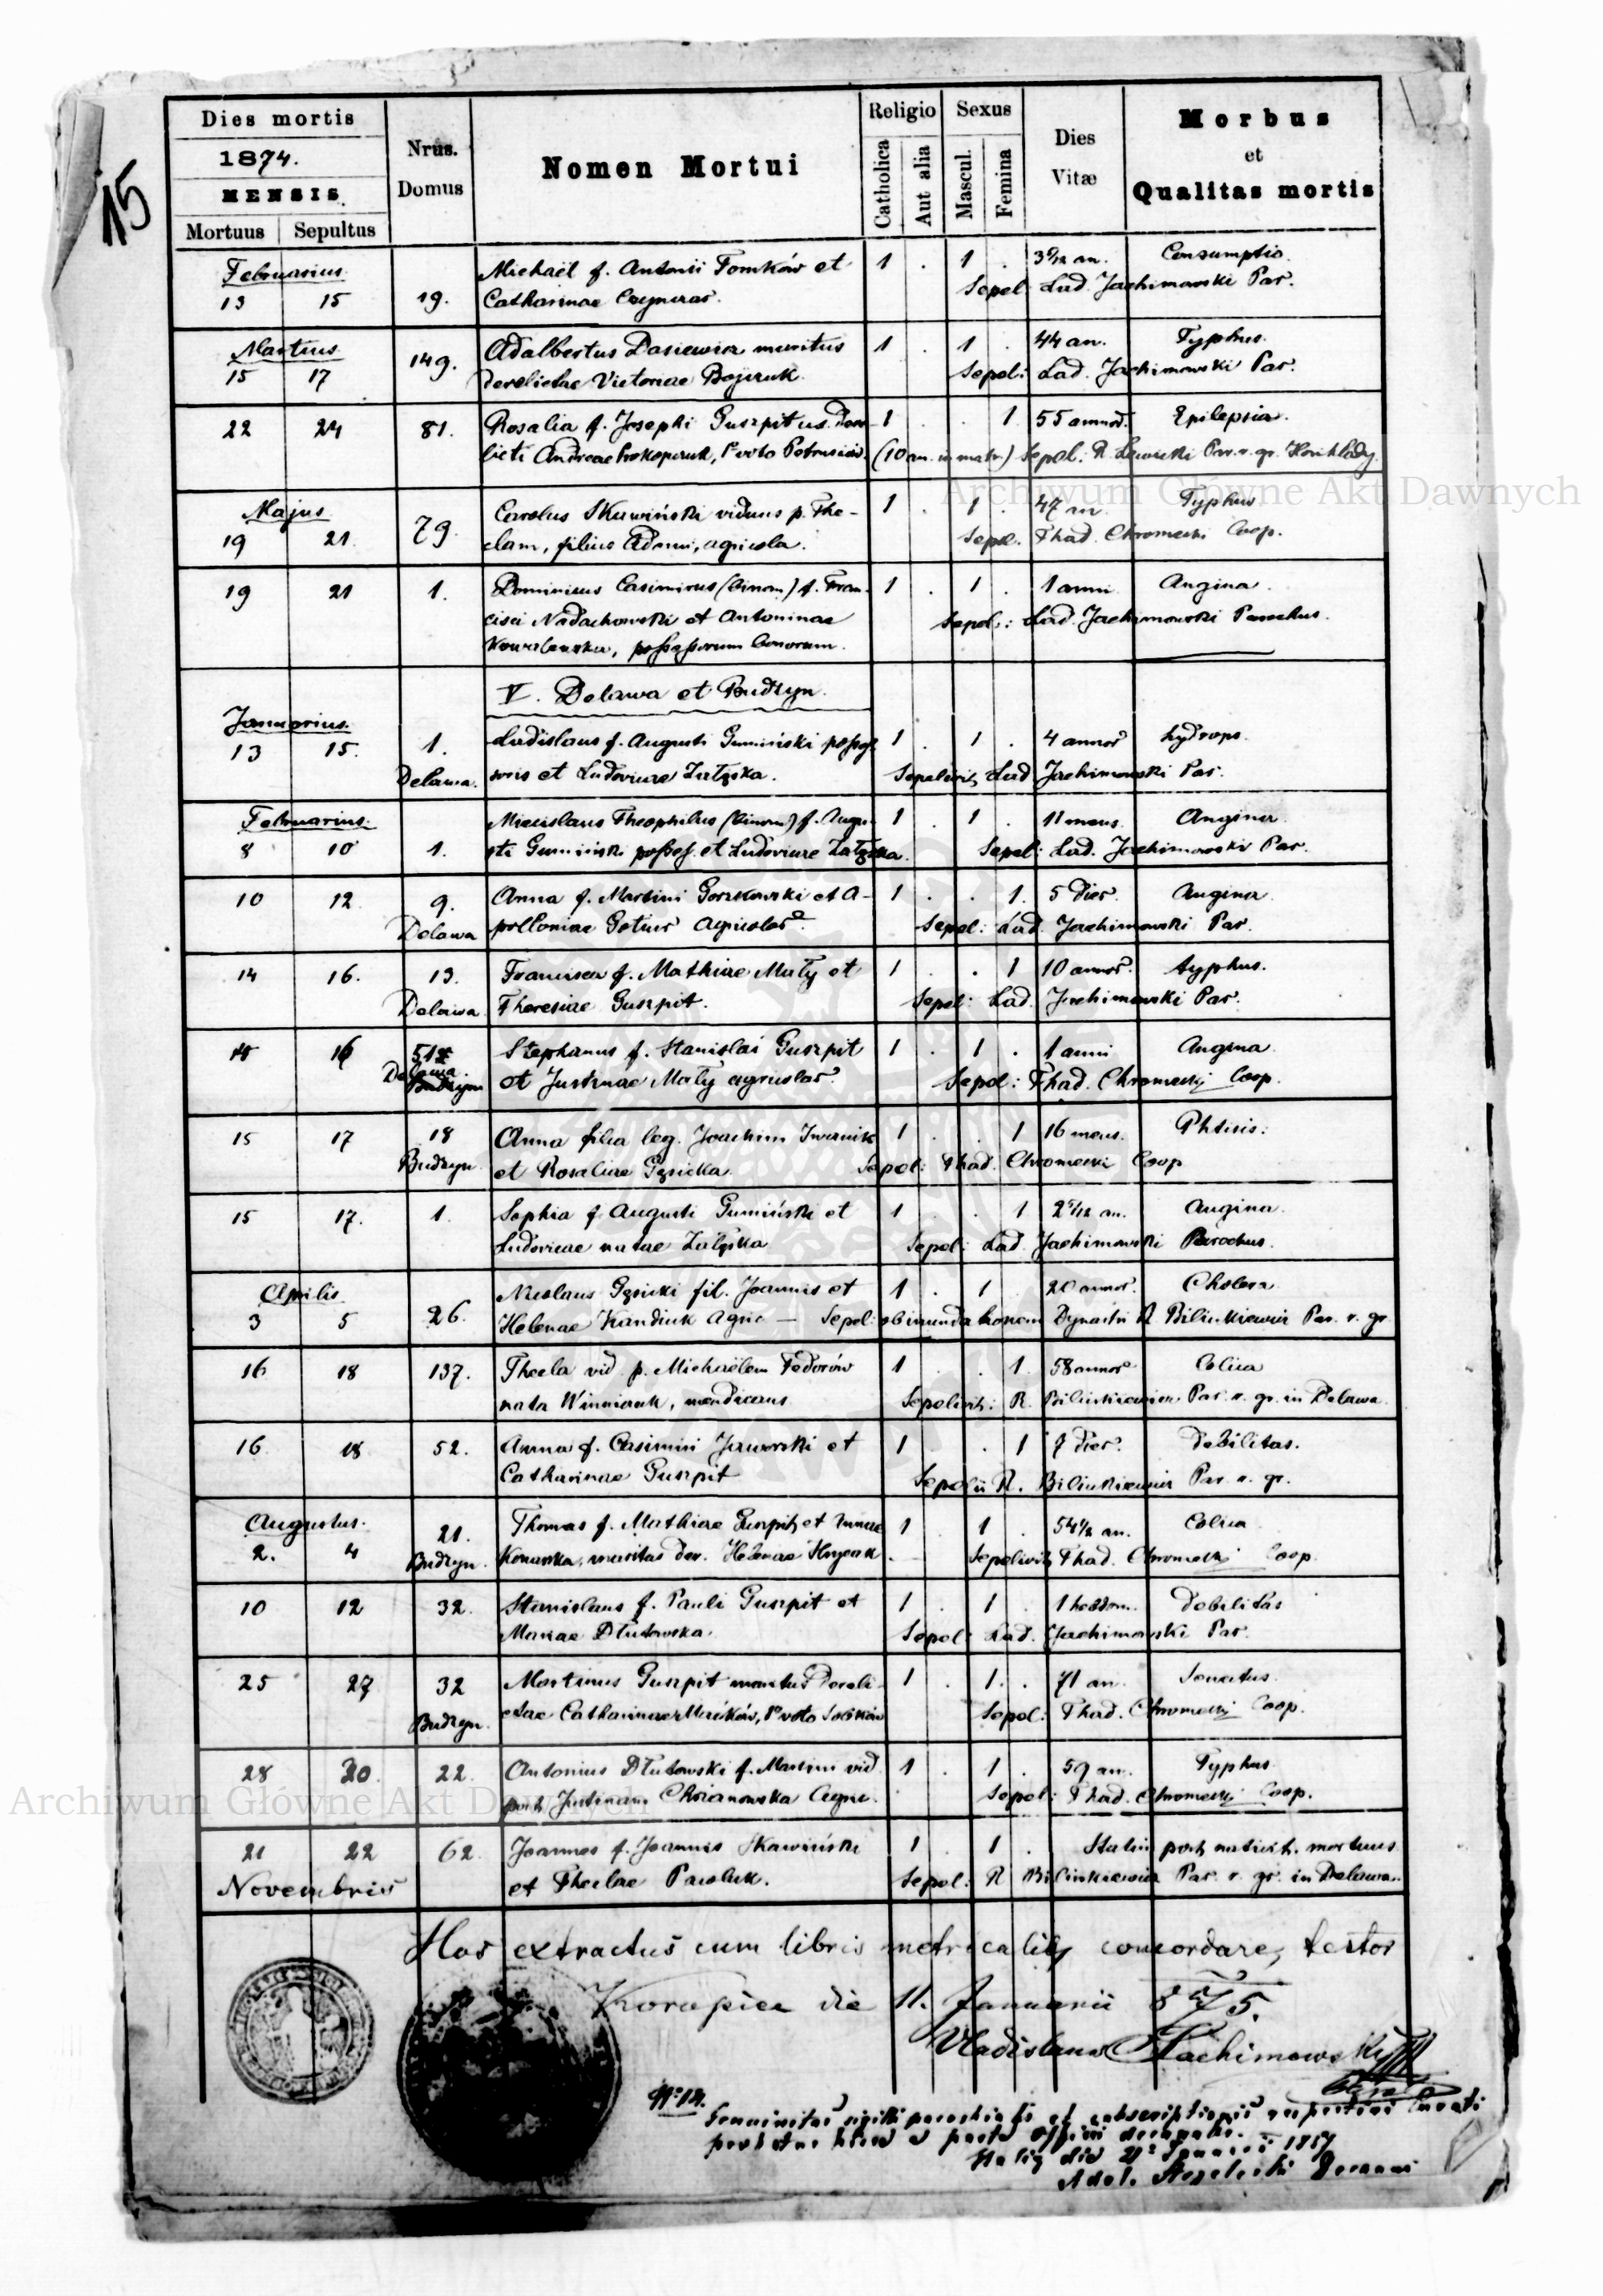 15
Dies mortis
1874.
MENSIS.
Mortuus Sepultus
Nrus.
Domus
Nomen Mortui
Religio
Catholica
Aut alia
Sexus
Mascul.
Femina
Dies
Vitæ
Morbus
et
Qualitas mortis
Februarius
13 15 19. Michaël f. Antonii Tomków et 1 . 1 . an. Consumptio.
Catharinae Sepel: Lad. Jachimowski Par.
Martius
15 17 149. Adalbertus Dasiewicz maritus 1 . 1 . 44 an. Typhus.
derelictae Victoriae Bojczuk. Sepel: Lad. Jachimowski Par.
22 24 81. Rosalia f. Josephi Guszpit ux. Dere- 1 . . 1 55 annor. Epilepsia.
licti Andreae Prokopczuk, 1º voto (10 an. in matr.) Sepel. R. Par. r. gr.
Majus
19 21. 79. Carolus Skawiński viduus p. The- 1 . 1 . 47 an. Typhus
clam, filius Adami, agricola. Sepel. Thad. Chromecki Coop.
19 21 1. Dominicus Casimirus (binom) f. Fran- 1 . 1 . 1 anni Angina.
cisci Nadachowski et Antoninae Sepel.: Lad. Jachimowski Parochus.
possessorum bonorum.
V. Delawa et Budzyn.
Januarius.
13 15. 1. Ladislaus f. Augusti Gumiński posses 1 . 1 . 4 annor hydrops.
Delawa. soris et Ludovicae Załęska. Sepelivit Lad. Jachimowski Par.
Februarius.
8 10 1. Miecislaus Theophilus (binom) f. Augu- 1 . 1 . 11 mens. Angina.
sti Gumiński posses. et Ludovicae Załęska. Sepel: Lad. Jachimowski Par.
10 12 9. Anna f. Martini Gorzkowski et A- 1 . . 1. 5 dier. Angina
Delawa polloniae agricolar. Sepel: Lad. Jachimowski Par.
14 16. 13. Francisca f. Mathiae Maty et 1 . . 1 10 annor. typhus.
Delawa Theresiae Guszpit. Sepel: Lad. Jachimowski Par.
16 Stephanus f. Stanislai Guszpit 1 . 1 . 1 anni Angina
Delawa. et Justinae Maty agricolar. Sepel: Thad. Chromecki Coop.
15 17 18 Anna filia leg. Joachim Iwanik 1 . . 1 16 mens. Phtisis.
Budzyn et Rosaliae Gęsicka. Sepel: Thad. Chromecki Coop
15 17. 1. Sophia f. Augusti Gumiński et 1 . . 1 an. Angina.
Ludovicae natae Załęska Sepel: Lad. Jachimowski Parochus.
Aprilis
3 5 26. Nicolaus Gęsicki fil. Joannis et 1 . 1 . 20 annor. Cholera
Helenae agric — Sepel: R Bilinkiewicz Par. r. gr
16 18 137. Thecla vid. p. Michaëlem Fedorów 1 . . 1. 58 annor Colica
nata Winniczuk, mendicans Sepelivit: R. Bilinkiewicz Par. r. gr. in Delawa.
16. 18 52. Anna f. Casimiri Jaworski et 1 . . 1 7 dier. Debilitas.
Catharinae Guszpit Sepel: R. Bilinkiewicz Par. r. gr.
Augustus.
2. 4 21. Thomas f. Mathiae Guszpit et Annae 1 . 1 . 54½ an. Colica
Budzyn. maritus der. Helenae Sepelivit Thad. Chromecki Coop.
10 12 32. Stanislaus f. Pauli Guszpit et 1 . 1 . 1 hebdom. Debilitas
Mariae Dłutowska. Sepel: Lad. Jachimowski Par.
25 27 32 Martinus Guszpit maritus Dereli- 1 . 1. . 71 an. Senectus.
Budzyn. ctae Catharinae 1º voto Sepel: Thad. Chromecki Coop.
28 30 22. Antonius Dłutowski f. Martini vid. 1 . 1 . 59 an. Typhus
post Justinam Chrzanowska Agric. Sepel: Thad. Chromecki Coop.
21 22 62. Joannes f. Joannis Skawiński 1 . 1 . Statim post nativit. mortuus
Novembris et Theclae Pawluk. Sepel: R Bilinkiewicz Par. r. gr. in Delawa.
Hos extractus cum libris metricalib concordare, testor
Koropiec die 11. Januarii 875.
Vladislaus Jachimowski
Nº 14.
Genuinitas sigilli parochialis et subscriptionis
officii decanalis.
Januarii
Archiwum Główne Akt Dawnych
Archiwum Główne Akt Dawnych